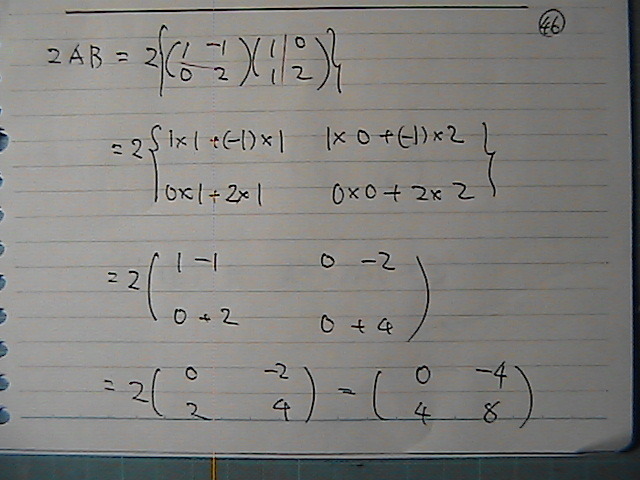 46
2AB = 2{(1 -1 0 2)(1 0 1 2)}
= 2{1×1+(-1)×1 1×0+(-1)×2
0×1+2×1 0×0+2×2}
= 2(1 -1 0 -2
0+2 0+4)
= 2(0 -2 2 4) = (0 -4 4 8)